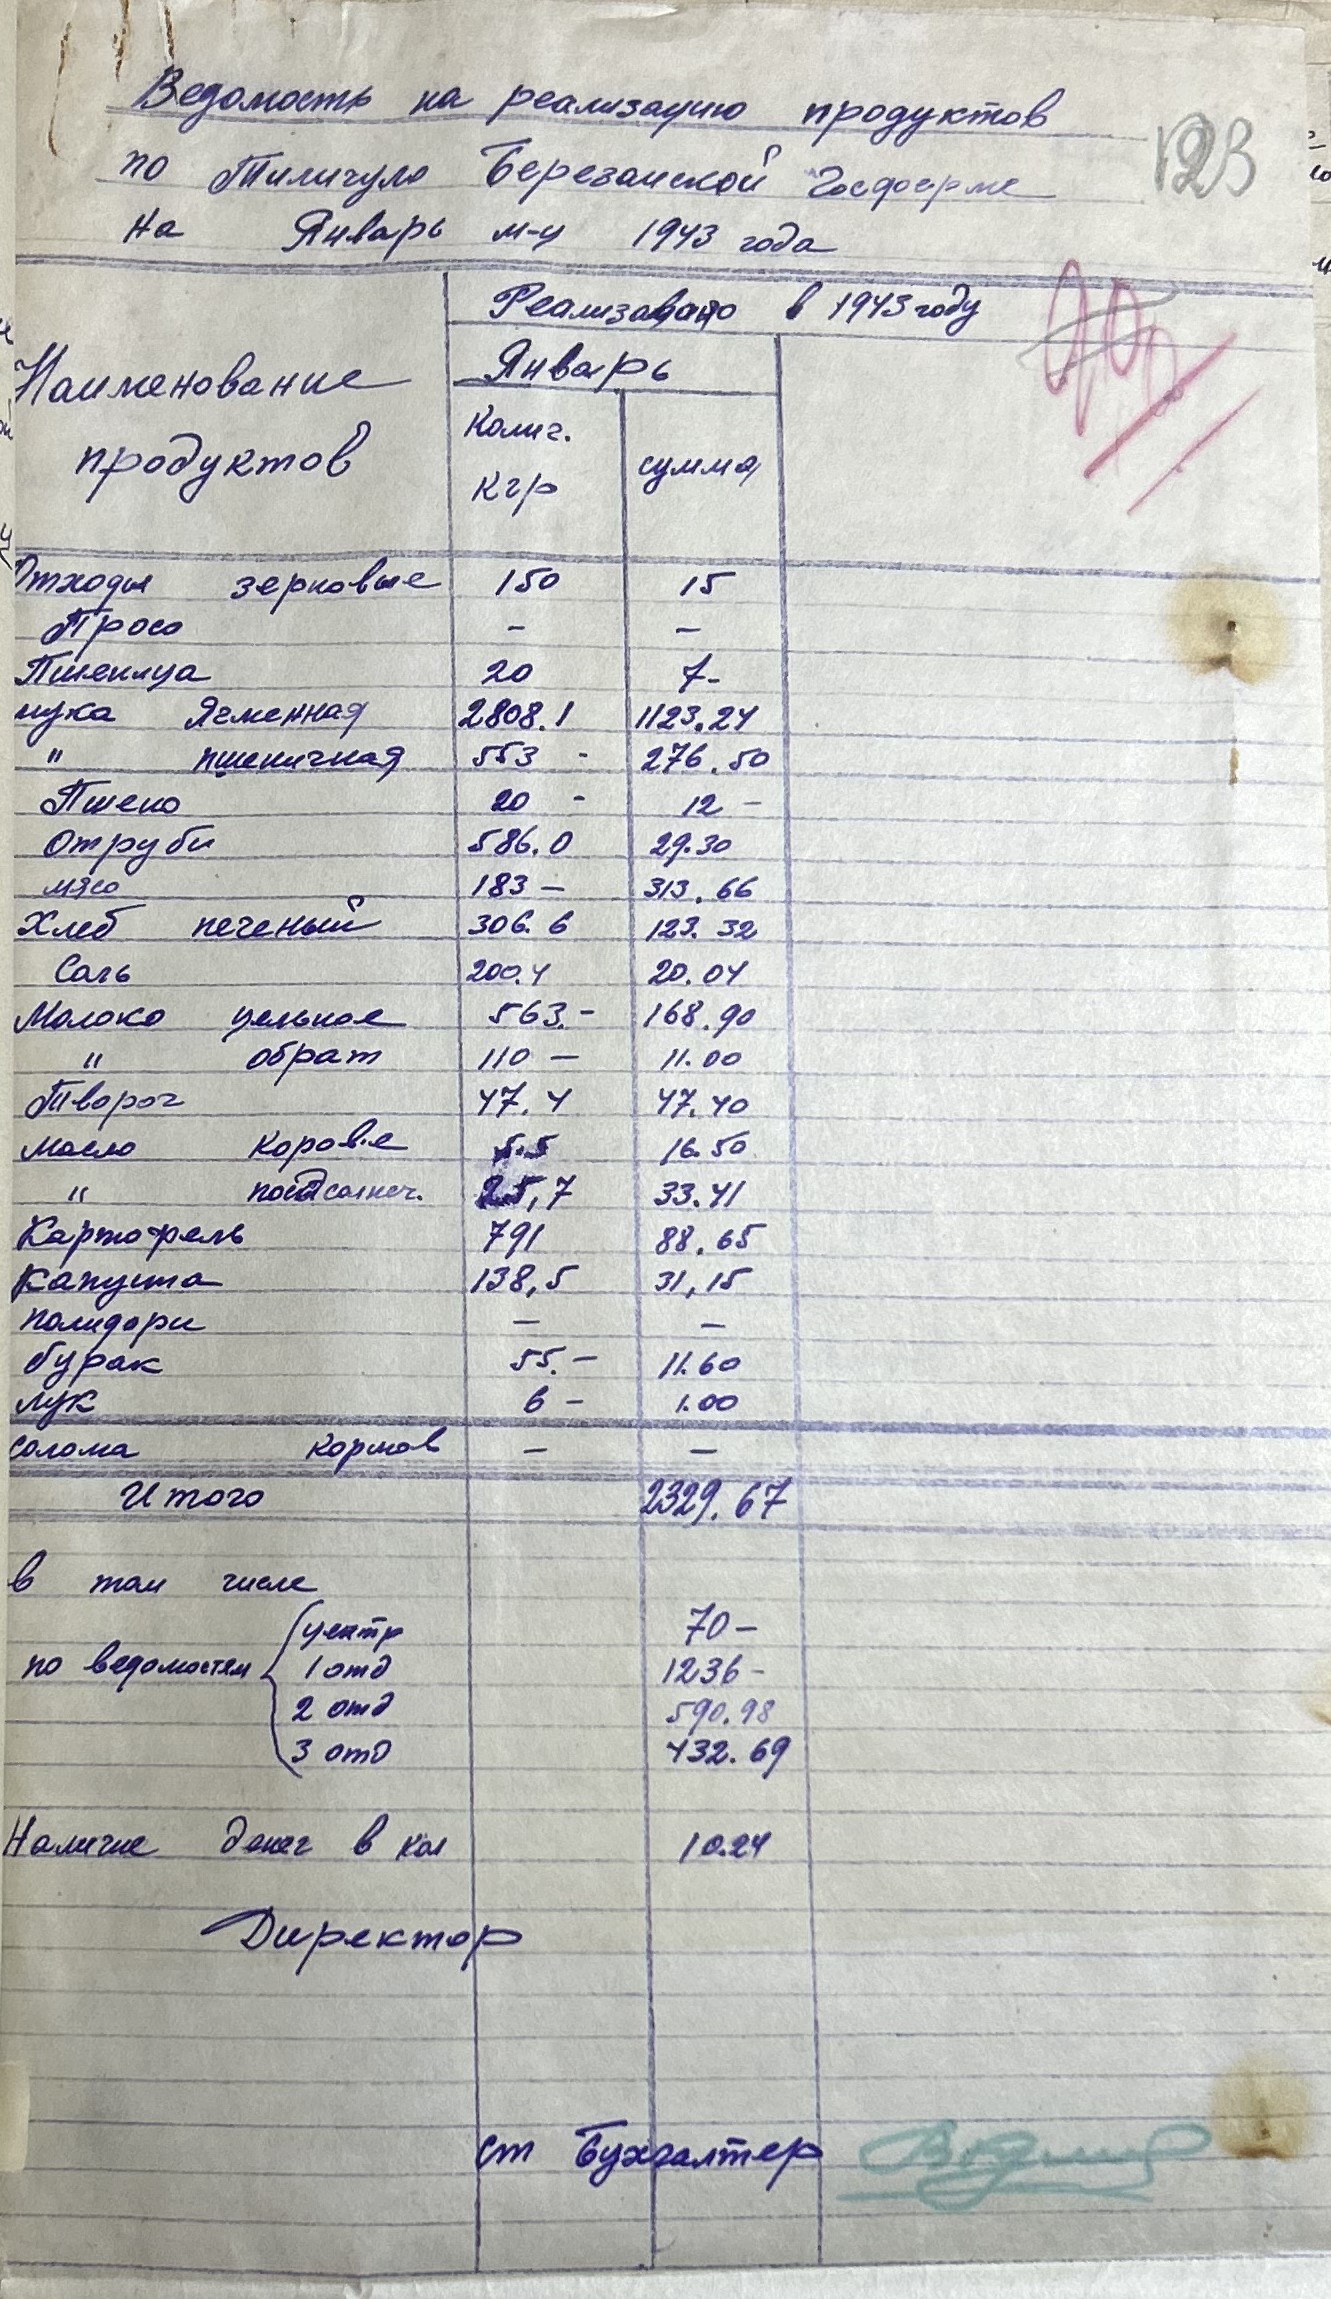 Ведомость на реализацию продуктов
по Тилигуло Березанской Госферме
на Январь м-ц 1943 года
123
Наименование продуктов
Реализовано в 1943 году
Январь
Колич. кгр
сумма
Отходы зерновые 150 15
Просо - -
Пшеница 20 7-
мука Ячменная 2808.1 1123.24
" пшеничная 553 - 276.50
Пшено 20 - 12 -
Отруби 586.0 29.30
мясо 183 - 313.66
Хлеб печеный 306.6 123.32
Соль 200.4 20.04
Молоко цельное 563.- 168.90
" обрат 110 - 11.00
Творог 47.4 47.40
масло коровье 5.5 16.50
" подсолнеч. 25,7 33.41
Картофель 791 88.65
Капуста 138,5 31,15
помидори - -
бурак 55.- 11.60
лук 6 - 1.00
солома кормов - -
Итого 2329.67
в том числе
по ведомостям
центр 70 -
1 отд 1236 -
2 отд 590.98
3 отд 432.69
Наличие денег в кол 10.24
Директор
ст Бухгалтер